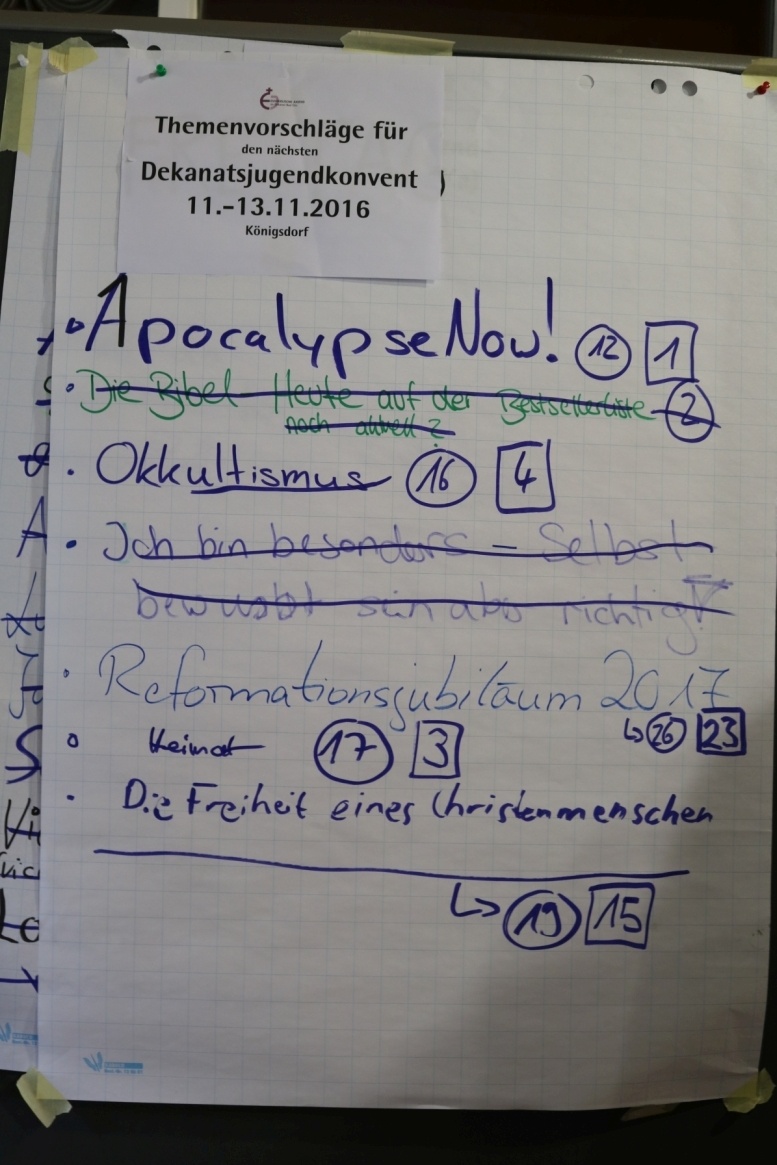 Themenvorschläge für
den nächsten
Dekanatsjugendkonvent
11.-13.11.2016
Königsdorf
• Apocalypse Now! 12 1
• Die Bibel Heute auf der Bestsellerliste 2
noch aktuell?
• Okkultismus 16 4
• Ich bin besonders – Selbst
bewusst sein aber richtig!
• Reformationsjubiläum 2017
↳ 26 23
• Heimat 17 3
• Die Freiheit eines Christenmenschen
↳ 19 15